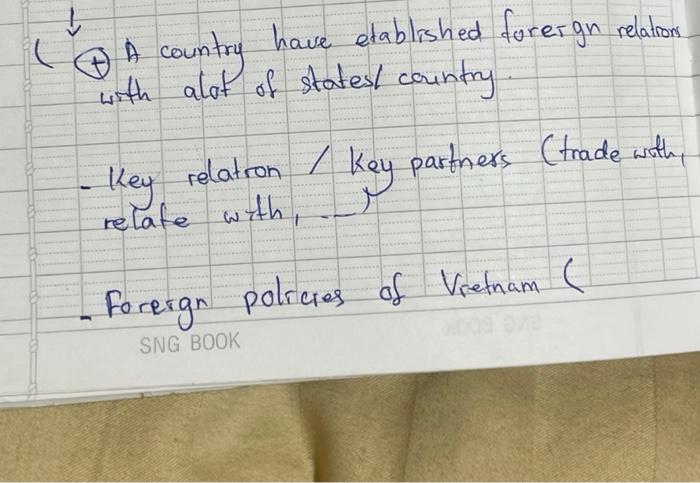 ( ⊕ A country have etablished foreign relations
with alot of states/ country.
- Key relation / key partners (trade with,
relate with, ...)
- Foreign policies of Vietnam (
SNG BOOK